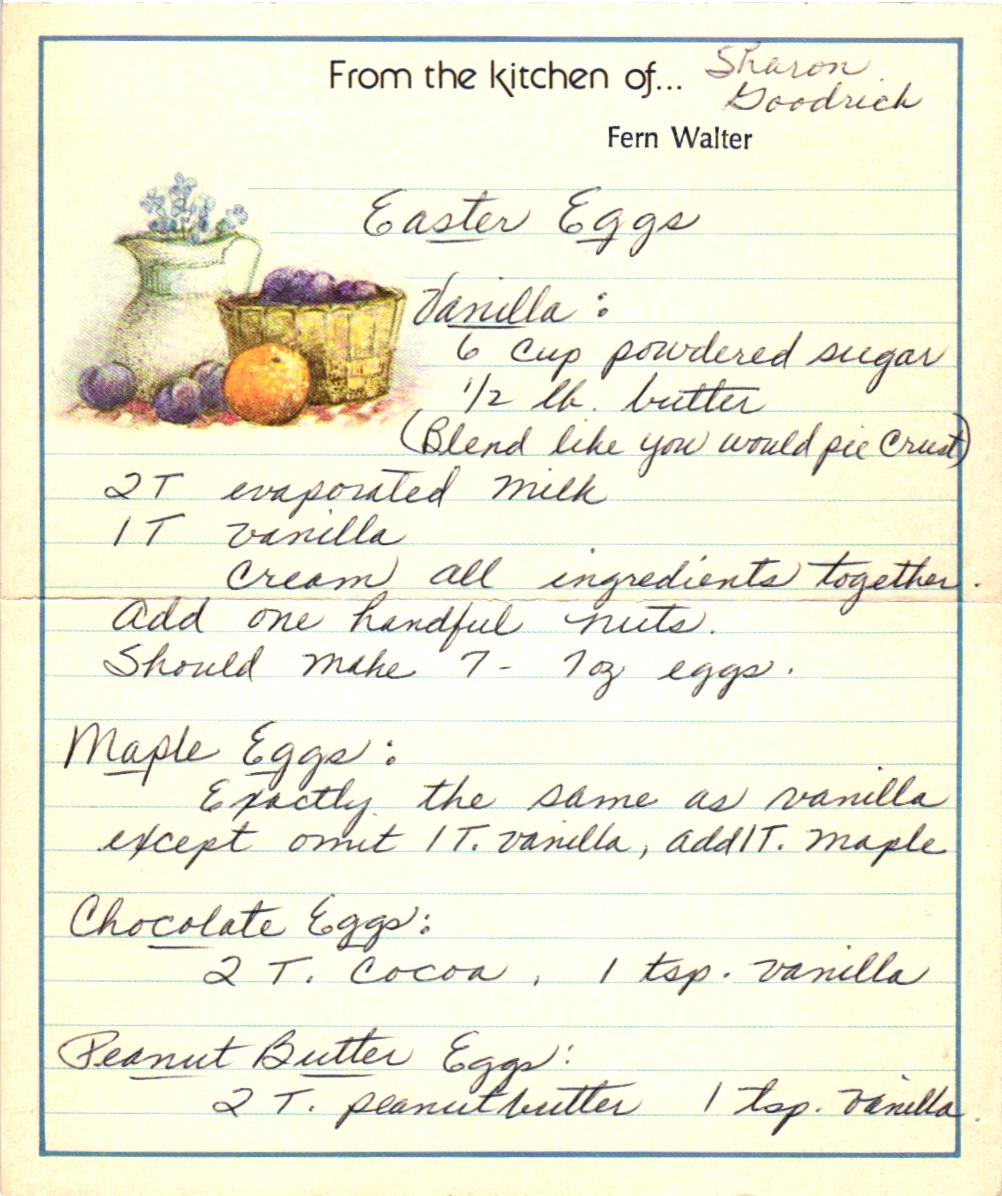 From the kitchen of... Sharon
Goodrich
Fern Walter
Easter Eggs
Vanilla :
6 cup powdered sugar
1/2 lb. butter
(Blend like you would pie crust)
2T evaporated milk
1T vanilla
Cream all ingredients together.
Add one handful nuts.
Should make 7 - 7oz eggs.
Maple Eggs :
Exactly the same as vanilla
except omit 1T. vanilla, add 1T. maple
Chocolate Eggs :
2 T. Cocoa , 1 tsp. vanilla
Peanut Butter Eggs :
2 T. peanutbutter 1 tsp. vanilla.